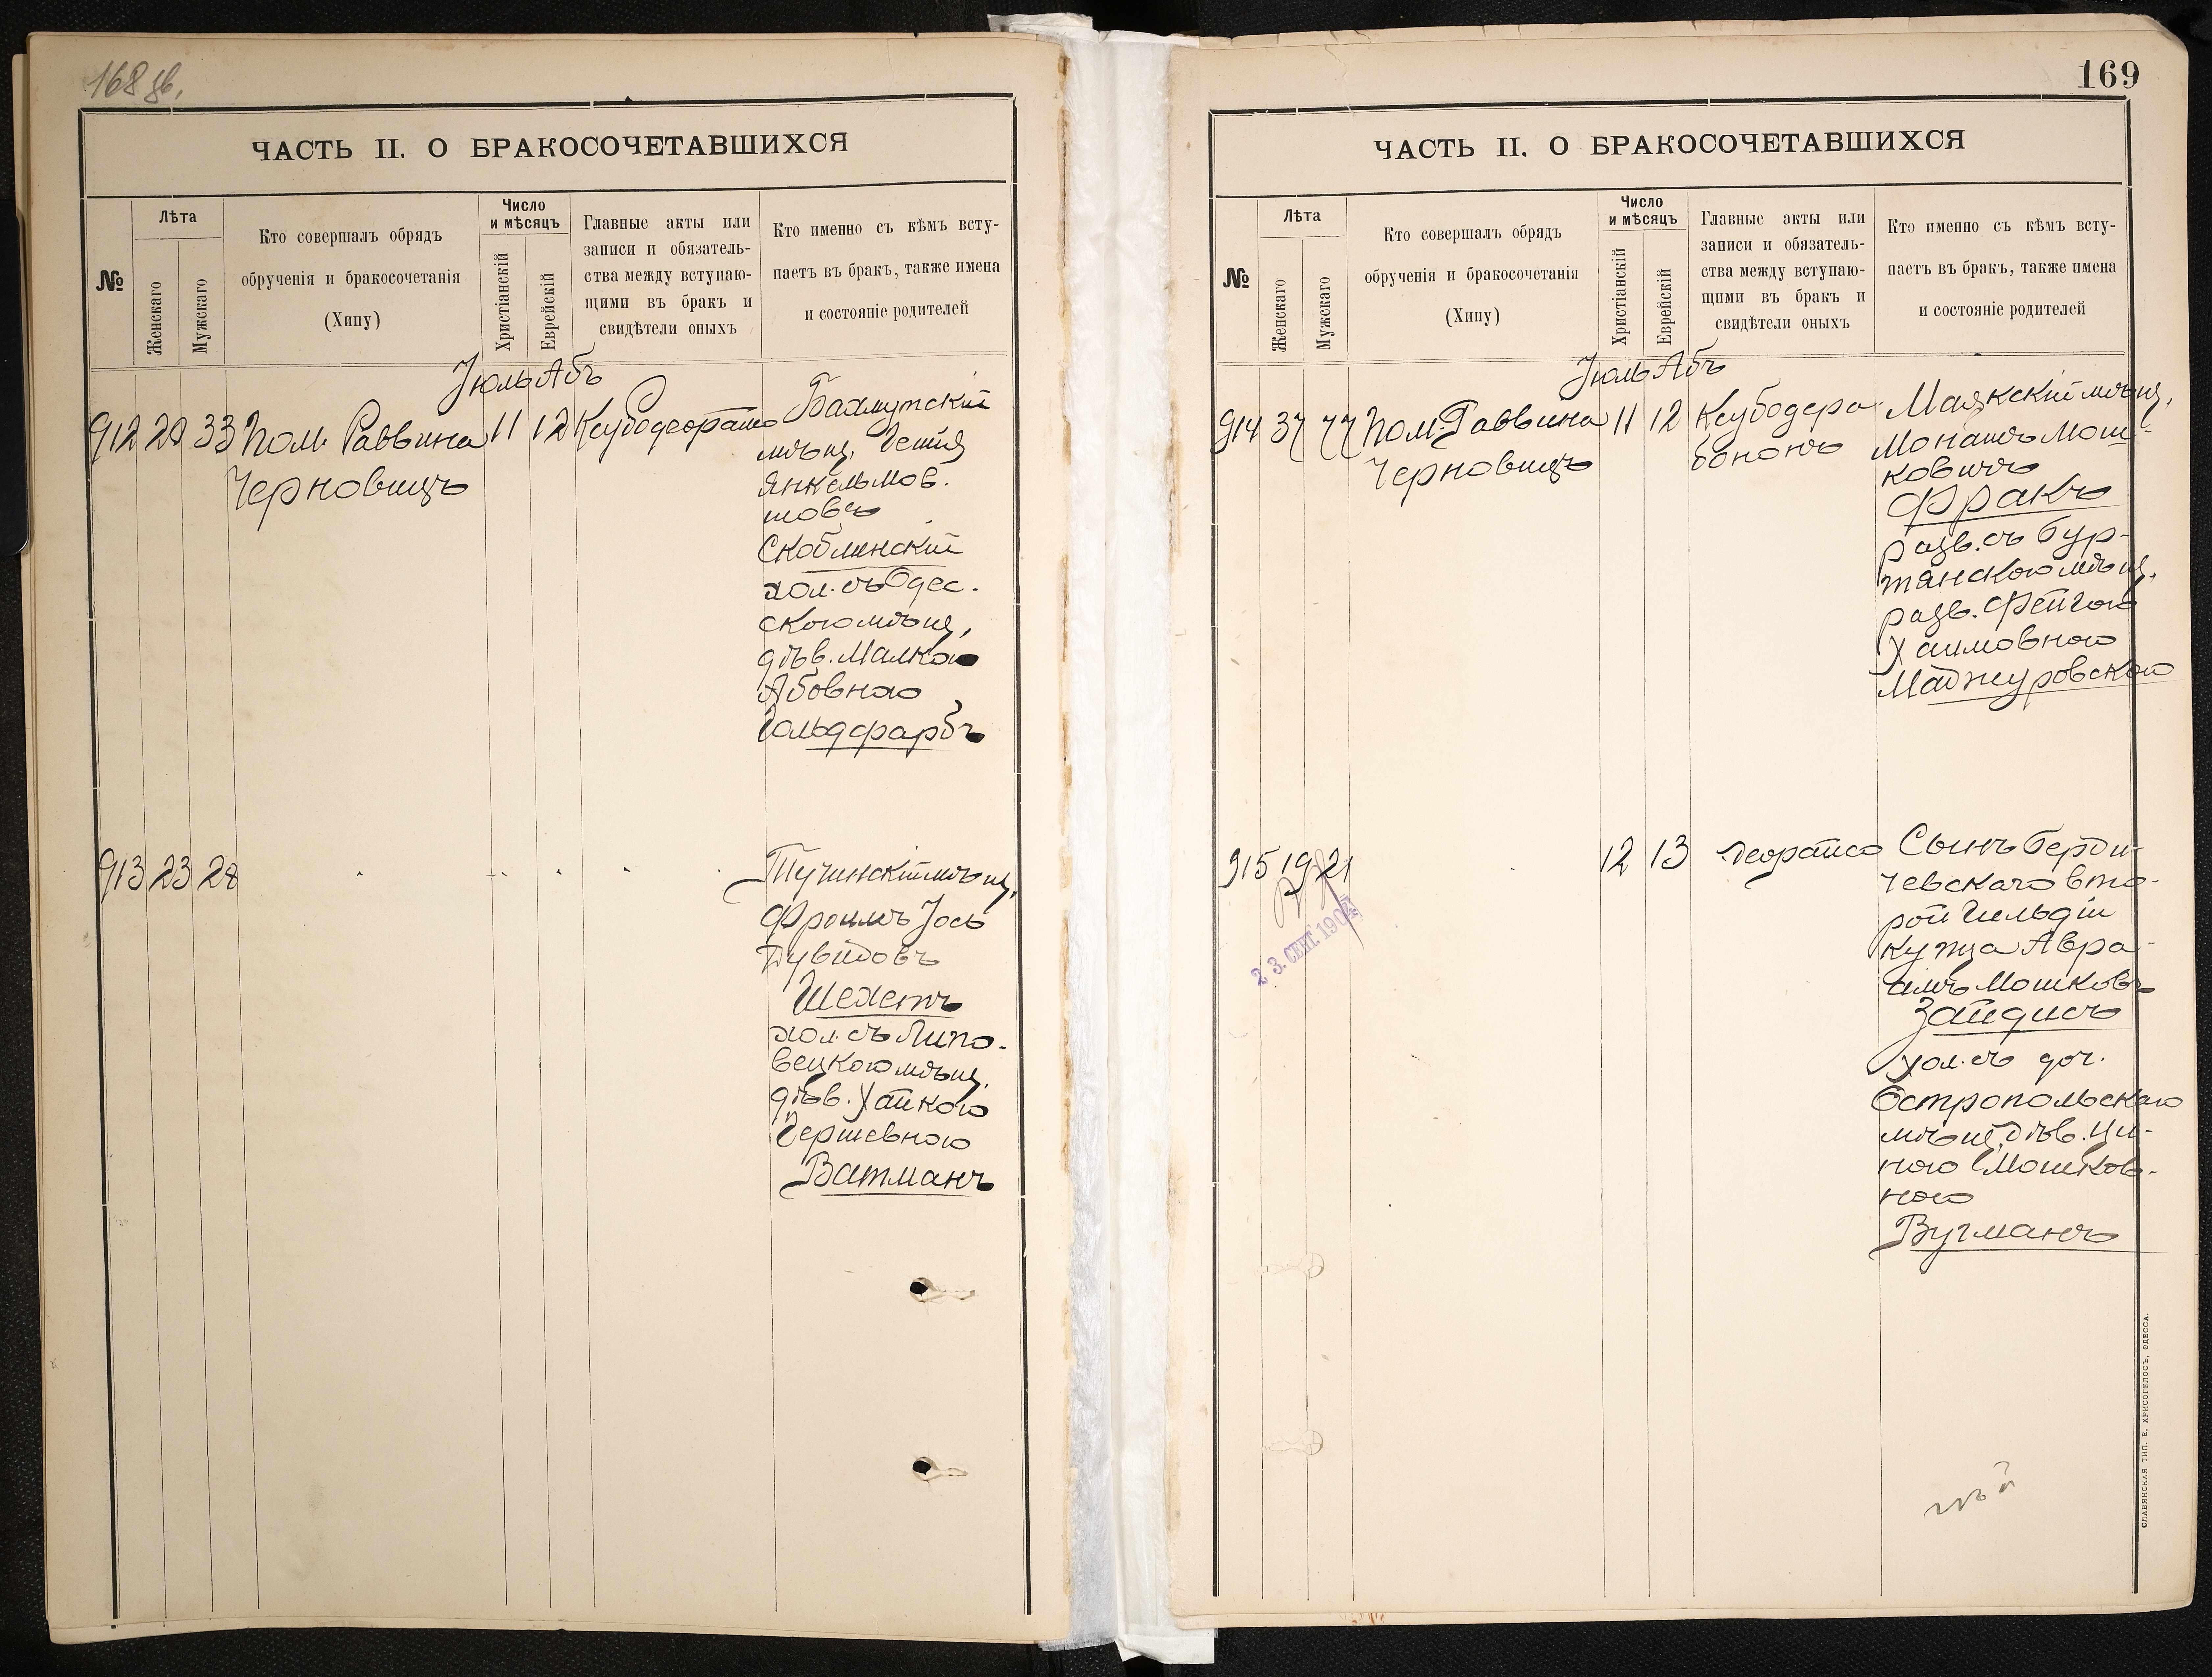 168 об.
ЧАСТЬ II. О БРАКОСОЧЕТАВШИХСЯ
№
Лѣта
Женскаго
Мужскаго
Кто совершалъ обрядъ
обрученія и бракосочетанія
(Хипу)
Число
и мѣсяцъ
Христіанскій
Еврейскій
Главные акты или
записи и обязатель-
ства между вступаю-
щими въ бракъ и
свидѣтели оныхъ
Кто именно съ кѣмъ всту-
паетъ въ бракъ, также имена
и состояніе родителей
Іюль Абъ
912 20 33 Пом. Раввина 11 12 Ксубодеорайсо
Черновицъ
Бахмутскій
мѣщ. Гецпя
Янкельмов.
шовъ
Скоблинскій
хол. съ Одес.
скою мѣщ,
дѣв. Малкою
Абовною
Гольдфарбъ
913 23 28
Тучинскій мѣщ,
Фроимъ Іось
Дувидовъ
Шехетъ
хол. съ Липо-
вецкою мѣщ.
дѣв. Хайкою
Гершевною
Ватманъ
169
ЧАСТЬ II. О БРАКОСОЧЕТАВШИХСЯ
№
Лѣта
Женскаго
Мужскаго
Кто совершалъ обрядъ
обрученія и бракосочетанія
(Хипу)
Число
и мѣсяцъ
Христіанскій
Еврейскій
Главные акты или
записи и обязатель-
ства между вступаю-
щими въ бракъ и
свидѣтели оныхъ
Кто именно съ кѣмъ всту-
паетъ въ бракъ, также имена
и состояніе родителей
Іюль Абъ
914 37 77 Пом. Раввина 11 12 Ксубодера
Черновицъ
бононъ
Маякскій мѣщ,
Монашъ Мош-
ковичъ
Фракъ
разв. съ Бур-
тянскою мѣщ.
разв. Фейгою
Хаимовною
Мажуровскою
915 19 21 12 13 деорайсо
23. СЕНТ. 190
Сынъ Берди-
чевскаго вто-
рой Гильдіи
купца Авра-
амъ Мошковъ
Зайдисъ
хол. съ доч.
Остропольскаго
мѣщ. дѣв. Ци-
ною Мошков-
ною
Вугманъ
СЛАВЯНСКАЯ ТИП. Е. ХРИСОГЕЛОСЪ, ОДЕССА.